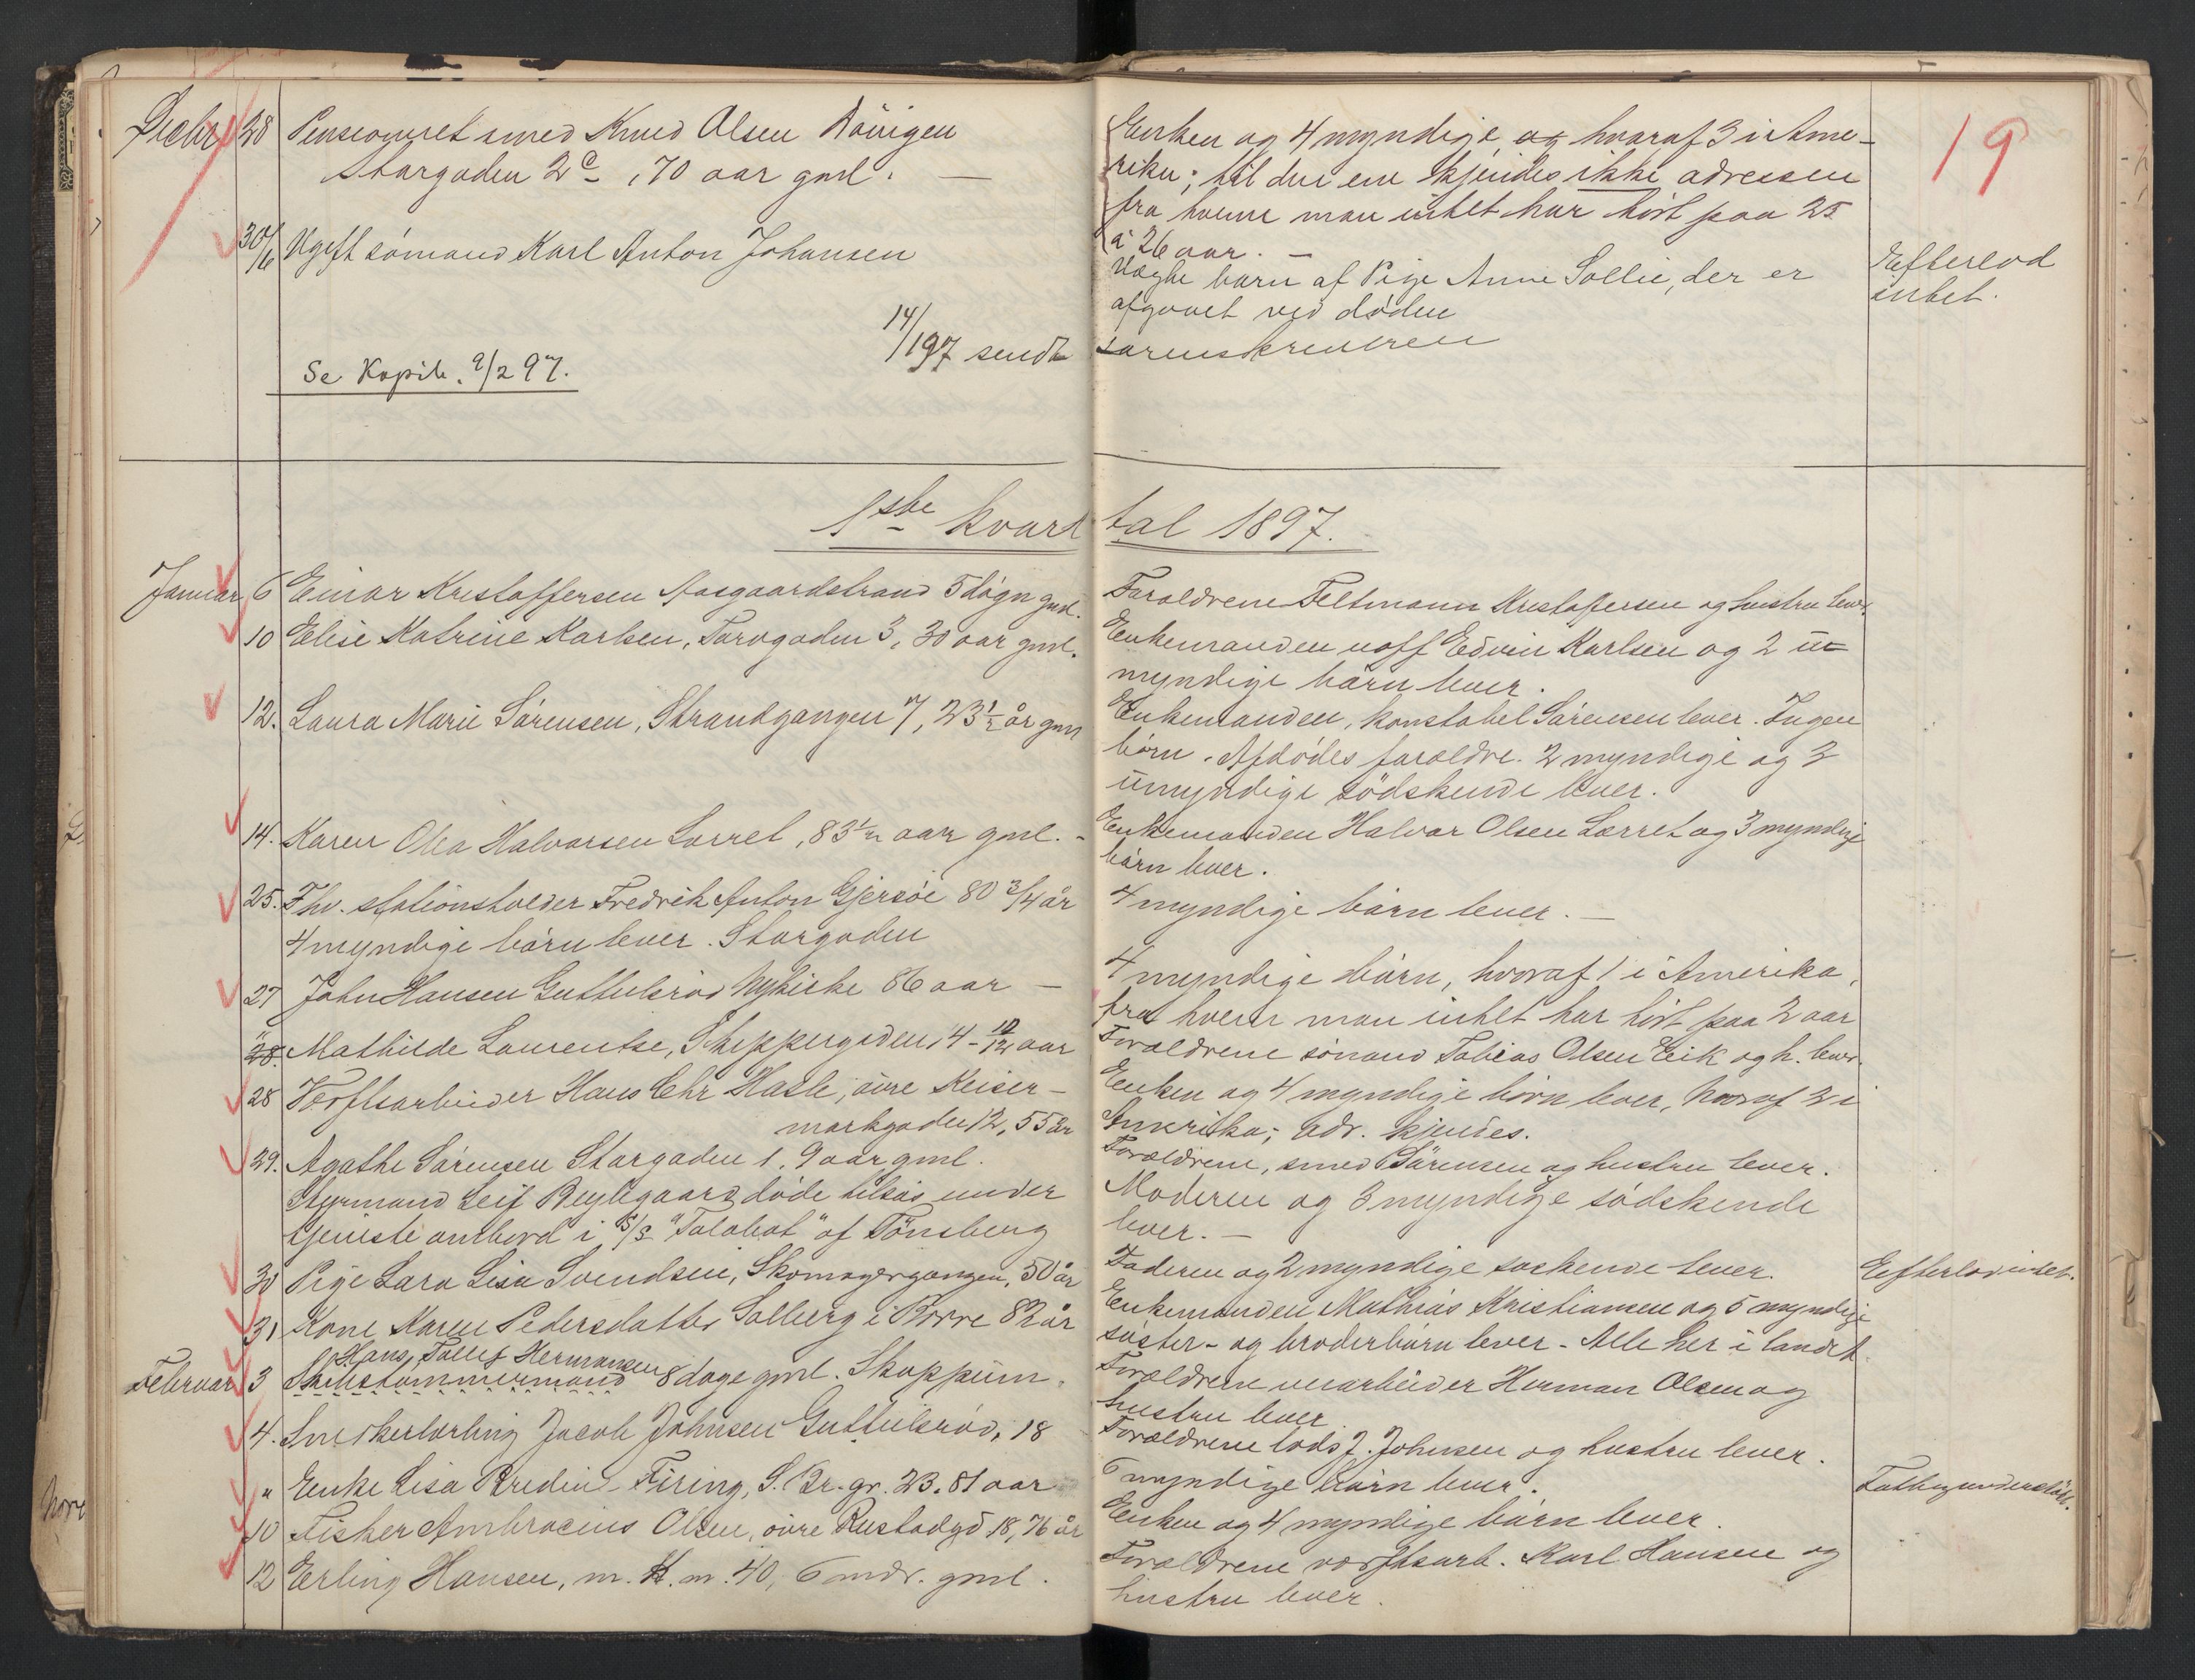 19
Decbr 28 Pensioneret smed Knud Olsen
Storgaden 2c, 70 aar gml. —
Enken og 4 myndige, og hvoraf 3 i Ame-
rika; til den ene kjendes ikke adressen
fra hvem man intet har hört paa 25
à 26 aar. —
30/6 Ugift sömand Karl Anton Johansen
Uægte barn af Pige Anne Sollie, der er
afgaaet ved döden
Efterlod
intet.
14/1 97 sendt sorenskriveren
Se Kopib. 9/2 97.
1ste kvartal 1897.
Januar 6 Einar Kristoffersen Aasgaardstrand 5 dögn gml.
Forældrene Feltmann Kristoffersen og hustru lever.
10 Elise Katrine Karlsen, Torvgaden 3, 30 aar gml.
Enkemanden uoff Edvin Karlsen og 2 u-
myndige börn lever.
12. Laura Marie Sörensen, Strandgangen 7, 23½ år gml
Enkemanden, konstabel Sörensen lever. Ingen
börn. Afdödes forældre. 2 myndige og 3
umyndige södskende lever.
14. Karen Olea Halvorsen Lorret, 83½ aar gml. -
Enkemanden Halvor Olsen Lorret og 3 myndige
börn lever.
25. Fhv. stationsholder Fredrik Anton Gjersöe 80 3/4 år
4 myndige börn lever. Storgaden
4 myndige börn lever. —
27 John Hansen Guttulsröd Nykirke 86 aar —
4 myndige börn, hvoraf 1 i Amerika,
fra hvem man intet har hört paa 2 aar
" 28. Mathilde Laurentse, Skippergaden 14 - 10/12 aar
Forældrene sömand Tobias Olsen Eik og h. lever.
28 Værftsarbeider Hans Chr Hasle, övre Keiser-
markgaden 12, 55 år
Enken og 4 myndige börn lever, hvoraf 2 i
Amerika; adr. kjendes.
29. Agathe Sörensen Storgaden 1. 9 aar gml.
Forældrene, smed Sörensen og hustru lever.
Styrmand Leif Bryhgaard döde tilsös under
tjeneste ombord i S/S "Talabot" af Tönsberg
Moderen og 3 myndige södskende
lever. —
30 Pige Lara Lisa Svendsen, Skomagergangen, 50 år
Faderen og 2 myndige soskende lever.
Efterlod intet.
31 Kone Karen Pedersdatter Solberg i Borre 82 år
Enkemanden Mathias Kristiansen og 5 myndige
söster- og broderbörn lever - Alle her i landet.
Februar 3 Hans Tollef Hermansen
Skibstömmermand 8 dage gml. Skoppum.
Forældrene Herman Olsen og
hustru lever.
4. Snedkerlærling Jacob Johnsen Guttulsröd, 18
Forældrene lods J. Johnsen og hustru lever.
" Enke Lisa Bredine Firing, S. Br. gr. 23. 81 aar
6 myndige börn lever.
Fattigunderstött.
10 Fisker Ambrosius Olsen, övre Rustadgd 18, 76 år
Enken og 4 myndige börn lever.
12 Erling Hansen, m. K. m. 40, 6 mdr. gml.
Forældrene værftsarb. Karl Hansen og
hustru lever.